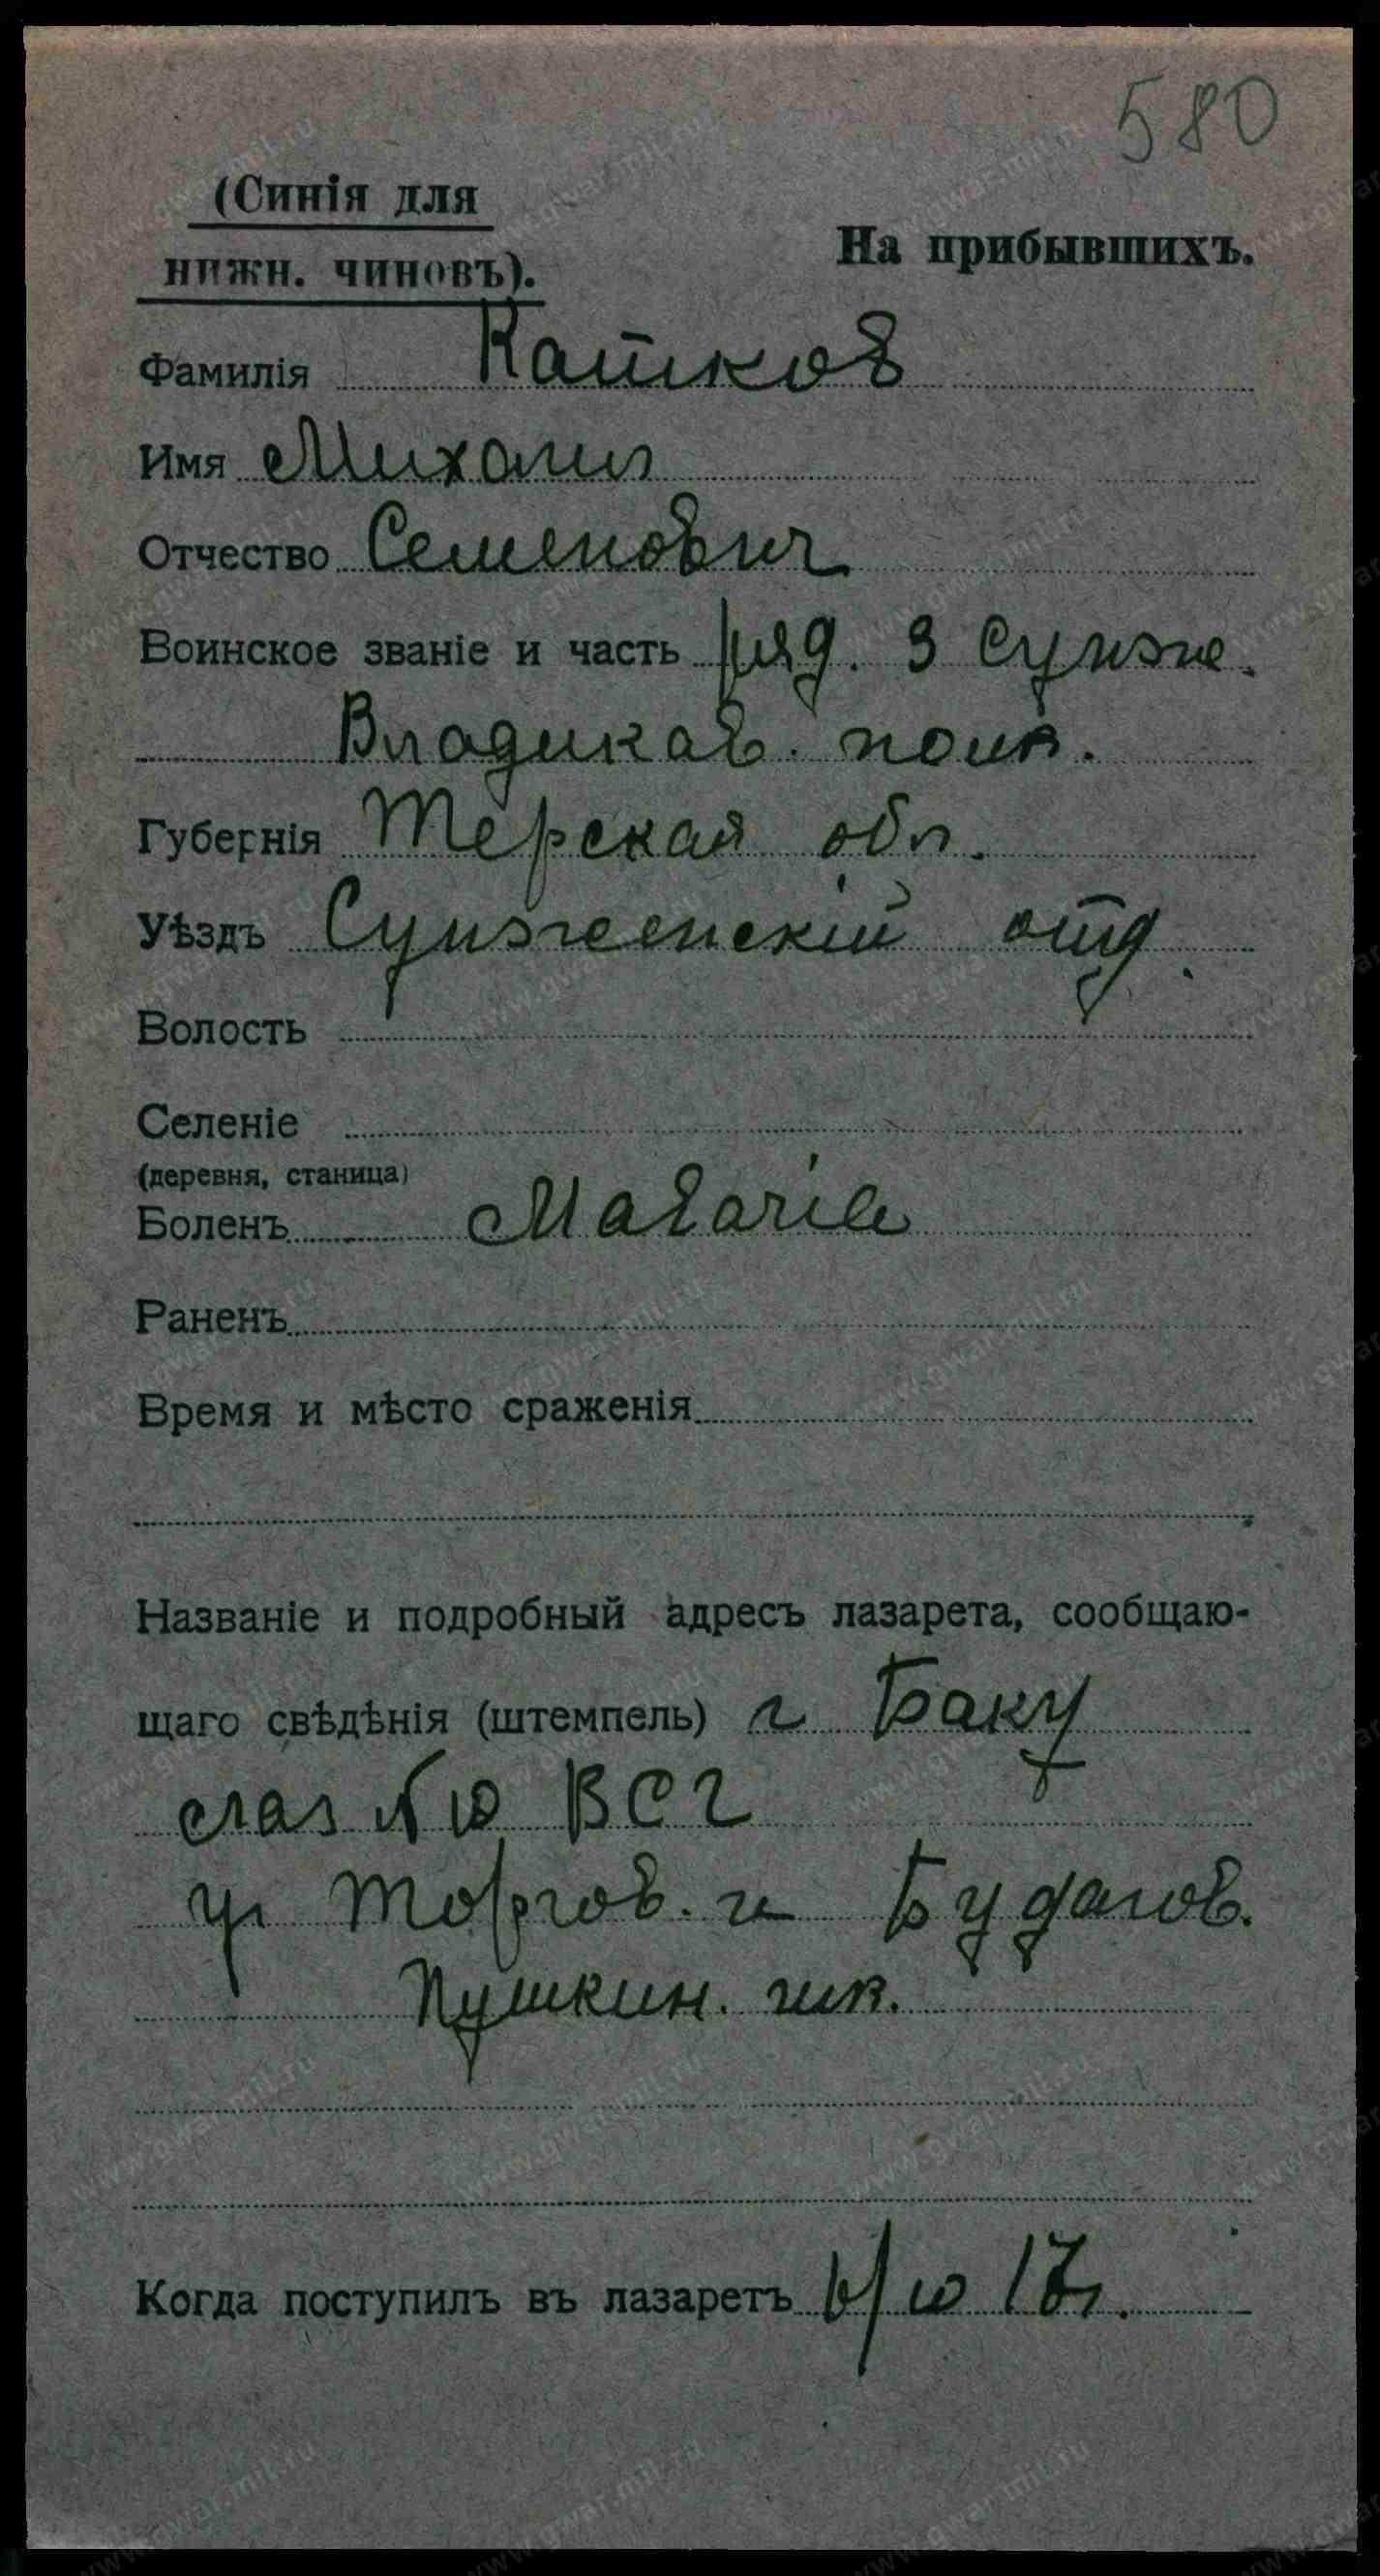 580
(Синія для
нижн. чиновъ).
На прибывшихъ.
Фамилія Катков
Имя Михаил
Отчество Семенович
Воинское званіе и часть ряд. 3 Сунже.
Владикав. полк.
Губернія Терская обл.
Уѣздъ Сунженскій отд.
Волость
Селеніе
(деревня, станица)
Боленъ Malaria
Раненъ
Время и мѣсто сраженія
Названіе и подробный адресъ лазарета, сообщаю-
щаго свѣдѣнія (штемпель) г Баку
лаз № 10 ВСГ
уг Торгов. и Будагов.
Пушкин.
Когда поступилъ въ лазаретъ 10 17г.